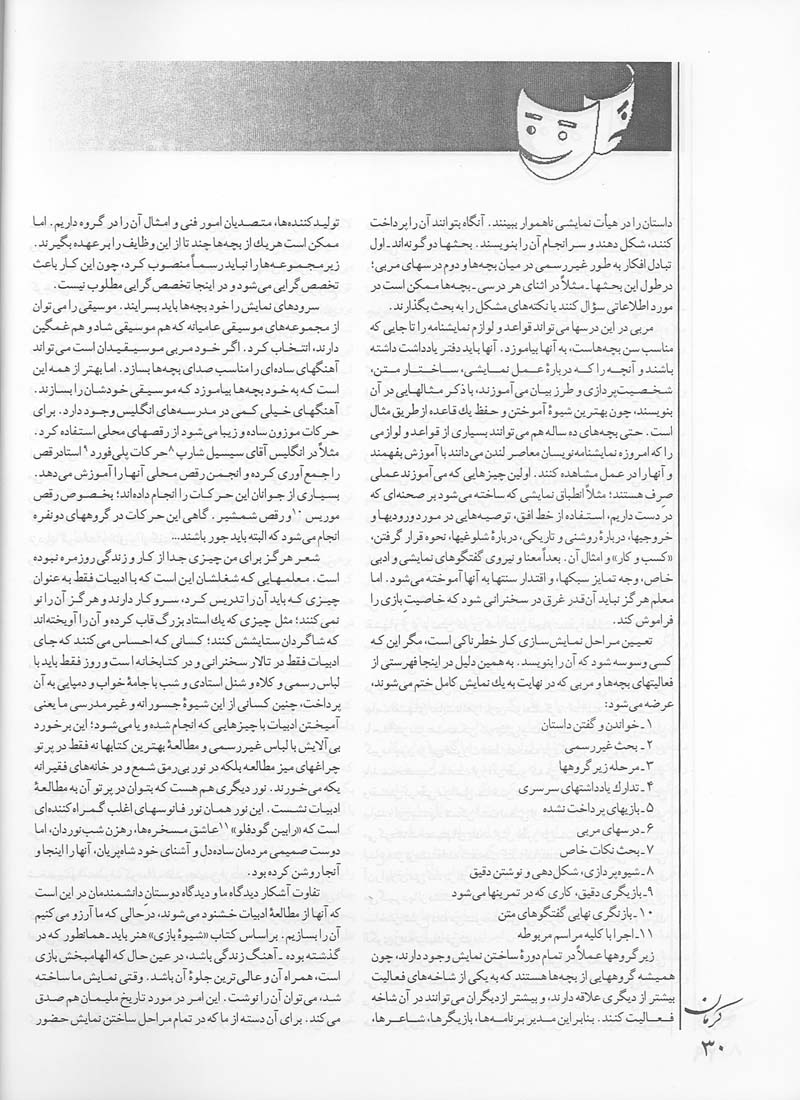 داستان را در هیأت نمایشی ناهموار ببینند. آنگاه بتوانند آن را پرداخت
کنند، شکل دهند و سرانجام آن را بنویسند. بحثها دو گونه‌اند ـ اول
تبادل افکار به طور غیررسمی در میان بچه‌ها و دوم درسهای مربی؛
در طول این بحثها ـ مثلاً در اثنای هر درسی ـ بچه‌ها ممکن است در
مورد اطلاعاتی سؤال کنند یا نکته‌های مشکل را به بحث بگذارند.
مربی در این درسها می‌تواند قواعد و لوازم نمایشنامه را تا جایی که
مناسب سن بچه‌هاست، به آنها بیاموزد. آنها باید دفتر یادداشت داشته
باشند و آنچه را که دربارهٔ عمل نمایشی، ساختار متن،
شخصیت‌پردازی و طرز بیان می‌آموزند، با ذکر مثالهایی در آن
بنویسند، چون بهترین شیوهٔ آموختن و حفظ یك قاعده از طریق مثال
است. حتی بچه‌های ده ساله هم می‌توانند بسیاری از قواعد و لوازمی
را که امروزه نمایشنامه‌نویسان معاصر لندن می‌دانند با آموزش بفهمند
و آنها را در عمل مشاهده کنند. اولین چیزهایی که می‌آموزند عملی
صِرف هستند؛ مثلاً انطباق نمایشی که ساخته می‌شود بر صحنه‌ای که
در دست داریم، استفاده از خط افق، توصیه‌هایی در مورد ورودیها و
خروجیها، دربارهٔ روشنی و تاریکی، دربارهٔ شلوغیها، نحوه قرار گرفتن،
«کسب و کار» و امثال آن. بعداً معنا و نیروی گفتگوهای نمایشی و ادبی
خاص، وجه تمایز سبکها، و اقتدار سنتها به آنها آموخته می‌شود. اما
معلم هرگز نباید آن‌قدر غرق در سخنرانی شود که خاصیت بازی را
فراموش کند.
تعیین مراحل نمایش‌سازی کار خطرناکی است، مگر این که
کسی وسوسه شود که آن را بنویسد. به همین دلیل در اینجا فهرستی از
فعالیتهای بچه‌ها و مربی که در نهایت به یك نمایش کامل ختم می‌شوند،
عرضه می‌شود:
۱ـ خواندن و گفتن داستان
۲ـ بحث غیررسمی
۳ـ مرحله زیر گروهها
۴ـ تدارك یادداشتهای سرسری
۵ـ بازیهای پرداخت نشده
۶ـ درسهای مربی
۷ـ بحث نکات خاص
۸ـ شیوه‌پردازی، شکل‌دهی و نوشتن دقیق
۹ـ بازیگری دقیق، کاری که در تمرینها می‌شود
۱۰ـ بازنگری نهایی گفتگوهای متن
۱۱ـ اجرا با کلیه مراسم مربوطه
زیر گروهها عملاً در تمام دورهٔ ساختن نمایش وجود دارند، چون
همیشه گروههایی از بچه‌ها هستند که به یکی از شاخه‌های فعالیت
بیشتر از دیگری علاقه دارند، و بیشتر از دیگران می‌توانند در آن شاخه
فعالیت کنند. بنابراین مدیر برنامه‌ها، بازیگرها، شاعرها،
تولیدکننده‌ها، متصدیان امور فنی و امثال آن را در گروه داریم. اما
ممکن است هر یك از بچه‌ها چند تا از این وظایف را بر عهده بگیرند.
زیرمجموعه‌ها را نباید رسماً منصوب کرد، چون این کار باعث
تخصص‌گرایی می‌شود و در اینجا تخصص گرایی مطلوب نیست.
سرودهای نمایش را خود بچه‌ها باید بسرایند. موسیقی را می‌توان
از مجموعه‌های موسیقی عامیانه که هم موسیقی شاد و هم غمگین
دارند، انتخاب کرد. اگر خود مربی موسیقیدان است می‌تواند
آهنگهای ساده‌ای را مناسب صدای بچه‌ها بسازد. اما بهتر از همه این
است که به خود بچه‌ها بیاموزد که موسیقی خودشان را بسازند.
آهنگهای خیلی کمی در مدرسه‌های انگلیس وجود دارد. برای
حرکات موزون ساده و زیبا می‌شود از رقصهای محلی استفاده کرد.
مثلاً در انگلیس آقای سیسیل شارپ ۸ حرکات پلی‌فورد ۹ استاد رقص
را جمع‌آوری کرده و انجمن رقص محلی آنها را آموزش می‌دهد.
بسیاری از جوانان این حرکات را انجام داده‌اند؛ بخصوص رقص
موریس ۱۰ و رقص شمشیر. گاهی این حرکات در گروههای دونفره
انجام می‌شود که البته باید جور باشند...
شعر هرگز برای من چیزی جدا از کار و زندگی روزمره نبوده
است. معلمهایی که شغلشان این است که با ادبیات فقط به عنوان
چیزی که باید آن را تدریس کرد، سروکار دارند و هرگز آن را نو
نمی‌کنند؛ مثل چیزی که یك استاد بزرگ قاب کرده و آن را آویخته‌اند
که شاگردان ستایشش کنند؛ کسانی که احساس می‌کنند که جای
ادبیات فقط در تالار سخنرانی و در کتابخانه است و روز فقط باید با
لباس رسمی و کلاه و شنل استادی و شب با جامهٔ خواب و دمپایی به آن
پرداخت، چنین کسانی از این شیوهٔ جسورانه و غیر مدرسی ما یعنی
آمیختن ادبیات با چیزهایی که انجام شده و یا می‌شود؛ این برخورد
بی‌آلایش با لباس غیررسمی و مطالعهٔ بهترین کتابها نه فقط در پرتو
چراغهای میز مطالعه بلکه در نور بی‌رمق شمع و در خانه‌های فقیرانه
یکه می‌خورند. نور دیگری هم هست که بتوان در پرتو آن به مطالعهٔ
ادبیات نشست. این نور همان نور فانوسهای اغلب گمراه کننده‌ای
است که «رابین گودفلو» ۱۱ عاشق مسخره‌ها، رهزن شب‌نوردان، اما
دوست صمیمی مردمان ساده‌دل و آشنای خود شاه‌پریان، آنها را اینجا و
آنجا روشن کرده بود.
تفاوت آشکار دیدگاه ما و دیدگاه دوستان دانشمندمان در این است
که آنها از مطالعهٔ ادبیات خشنود می‌شوند، درحالی که ما آرزو می‌کنیم
آن را بسازیم. براساس کتاب «شیوهٔ بازی» هنر باید ـ همانطور که در
گذشته بوده ـ آهنگ زندگی باشد، در عین حال که الهامبخش بازی
است، همراه آن و عالی‌ترین جلوهٔ آن باشد. وقتی نمایش ما ساخته
شد، می‌توان آن را نوشت. این امر در مورد تاریخ ملیمان هم صدق
می‌کند. برای آن دسته از ما که در تمام مراحل ساختن نمایش حضور
کرمان
۳۰